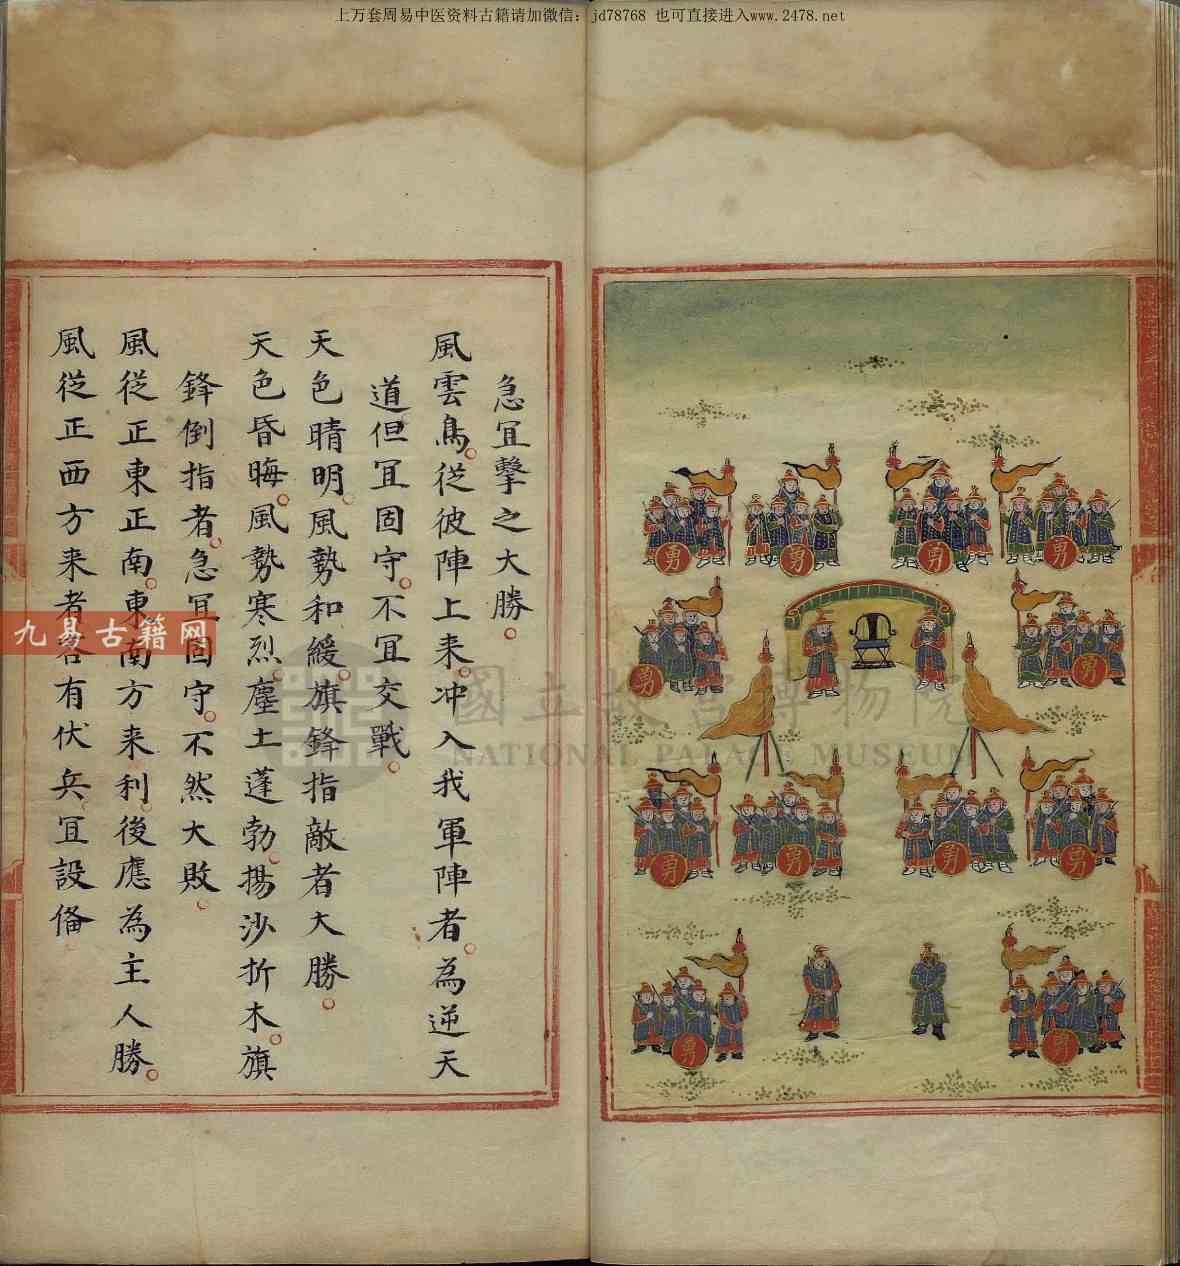 上万套周易中医资料古籍请加微信：jd78768 也可直接进入www.2478.net
勇 勇 勇 勇
勇 勇
勇 勇 勇 勇
勇 勇
急宜擊之大勝。
風雲鳥。從彼陣上来。冲入我軍陣者。為逆天
道但宜固守。不宜交戰。
天色晴明。風勢和緩。旗鋒指敵者大勝。
天色昏晦。風勢寒烈。塵土蓬勃。揚沙折木。旗
鋒倒指者。急宜固守。不然大敗。
風從正東正南。東南方来利。後應為主人勝。
風從正西方来者各有伏兵。宜設俻
九易古籍网
國立故宮博物院
NATIONAL PALACE MUSEUM